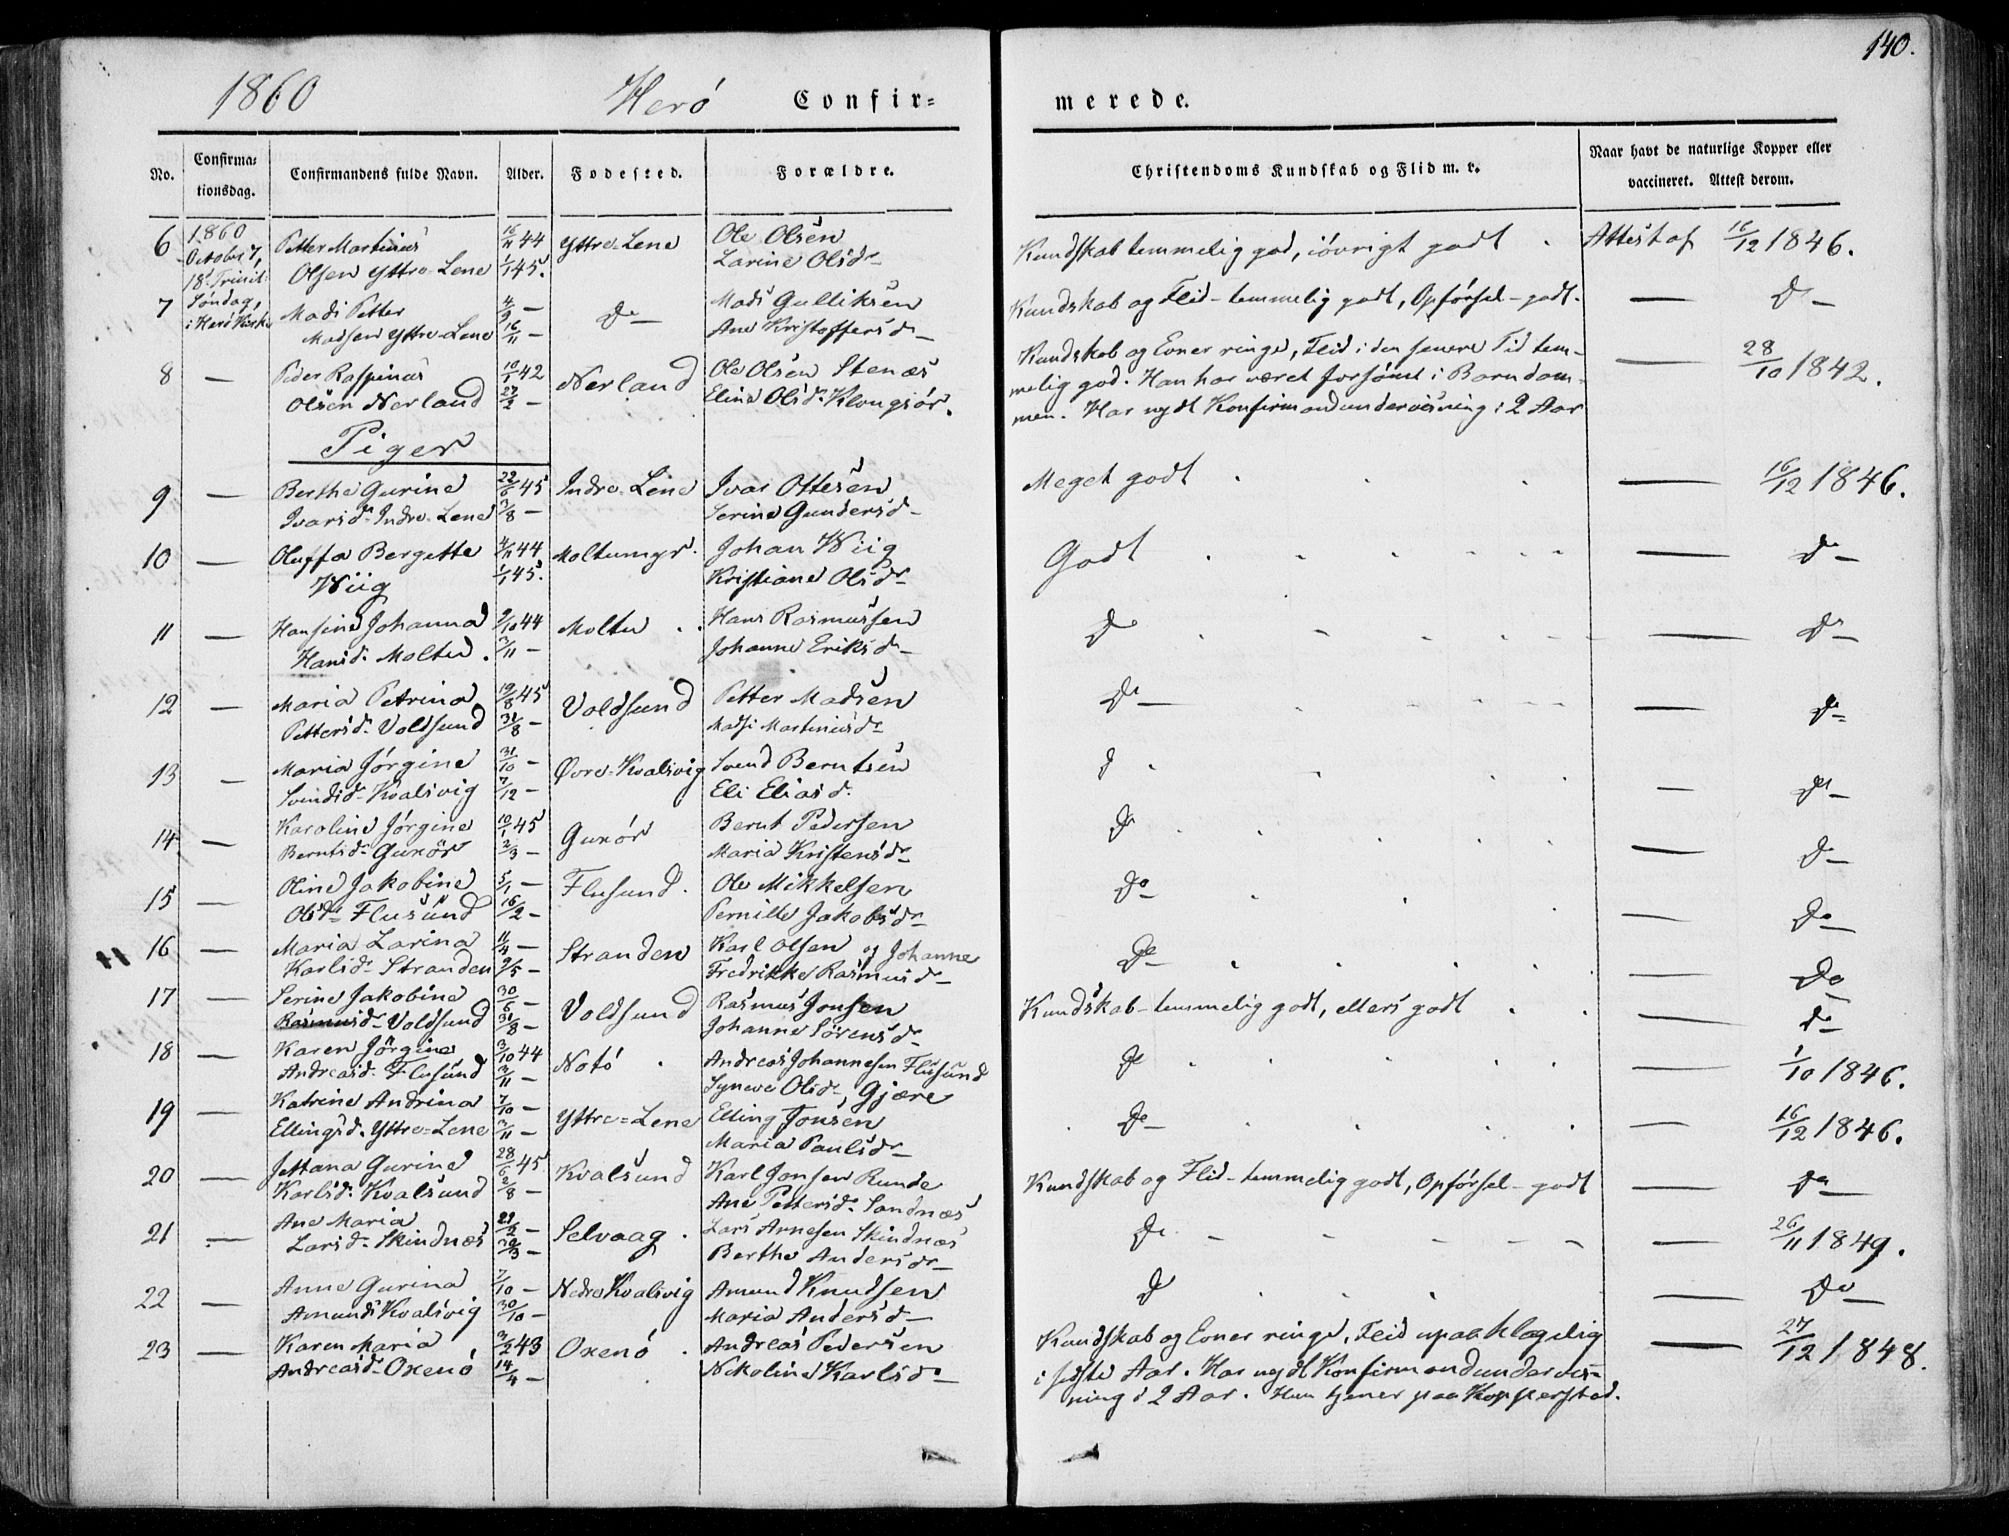 140.
1860 Herö Confir= merede.
No. Confirma=tionsdag. Confirmandens fulde Navn. Alder. Fødested. Forældre. Christendoms Kundskab og Flid m. v. Naar havt de naturlige Kopper eller vaccineret. Attest derom.
6 1860 Petter Martinus 16/11 44 Yttre-Lene Ole Olsen Kundskab temmelig god, iövrigt godt . Attest af 16/12 1846.
October 7, Olsen Yttre-Lene 1/1 45. Larine Olsd.
18. Trinit.
7 Søndag, Mads Petter 4/9 — Do — Mads Gulliksen Kundskab og Flid – temmelig godt, Opförsel – godt. — Do —
i Herö Kirke Madsen Yttre-Lene 16/11 — Ane Kristoffersd.
8 — Peder Raspinus 10/1 42 Nerland Ole Olsen Stenæs Kundskab og Evner ringe, Flid i den senere Tid tem- — 28/10 1842.
Olsen Nerland 27/2 — Eline Olsd. Klongsör. melig god. Han har været forsömt i Barndom-
men. Har nydt Konfirmandundervisning i 2 Aar
Piger
9 — Berthe Gurine 22/6 45 Indre-Lene Ivar Ottesen Meget godt . . — 16/12 1846.
Ivarsd. Indre-Lene 3/8 — Serine Gundersd.
10 — Oluffa Bergette 4/11 44 Moltumyr. Johan Wiig Godt . . . — Do —
Wiig 1/1 45. Kristiane Olsd.
11 — Hansine Johanna 9/10 44 Moltu . . Hans Rasmussen Do . — Do —
Hansd. Moltu. 3/11 — Johanne Eriksd.
12 — Maria Petrina 19/8 45 Voldsund Petter Madsen Do — — Do
Pettersd. Voldsund 31/8 — Madsi Martinusd.
13 — Maria Jörgine 31/10 — Övre-Kvalsvig Svend Berntsen Do . — Do —
Svendsd. Kvalsvig 7/12 — Eli Eliasd.
14 — Karoline Jörgine 10/1 45 Gurör Bernt Pedersen Do . — Do —
Berntsd. Gurör 2/3 — Maria Kristensd.
15 — Oline Jakobine 5/1 — Flusund. Ole Mikkelsen Do . — Do —
Olsd. Flusund 16/2 — Pernille Jakobsd.
16 — Maria Larina 11/4 — Stranden Karl Olsen og Johanne Do . — Do
Karlsd. Stranden 9/5 — Fredrikke Rasmusd.
17 — Serine Jakobine 30/6 — Voldsund Rasmus Jonsen Kundskab – temmelig godt, ellers godt . — Do —
Rasmusd. Voldsund 31/8 — Johanne Sörensd.
18 — Karen Jörgine 3/10 44 Notö . Andreas Johannesen Flusund Do . — 1/10 1846.
Andreasd. Flusund 3/11 — Syneve Olsd., Gjære
19 — Katrine Andrina 7/10 — Yttre=Lene Elling Jonsen Do — . — 16/12 1846.
Ellingsd. Yttre-Lene 3/11 — Maria Paulsd.
20 — Jettana Gurine 28/6 45 Kvalsund Karl Jonsen Runde Kundskab og Flid – temmelig godt, Opförsel – godt — Do —
Karlsd. Kvalsund 2/8 — Ane Pettersd. Sandnæs
21 — Ane Maria 22/2 — Selvaag . Lars Arnesen Skindnæs Do — 26/11 1849.
Larsd. Skindnæs 30/3 — Berthe Andersd.
22 — Anne Gurina 7/10 — Nedre Kvalsvig Amund Knudsen Do . — Do —
Amunds Kvalsvig 30/10 — Maria Andersd.
23 — Karen Maria 3/2 43 Oxenö . Andreas Pedersen Kundskab og Evner ringe, Flid upaaklagelig — 27/12 1848.
Andreasd. Oxenö 14/4 — Nikoline Karlsd. i sidste Aar. Har nydt Konfirmandundervis-
ning i 2 Aar. Hun tjener paa Kopperstad.